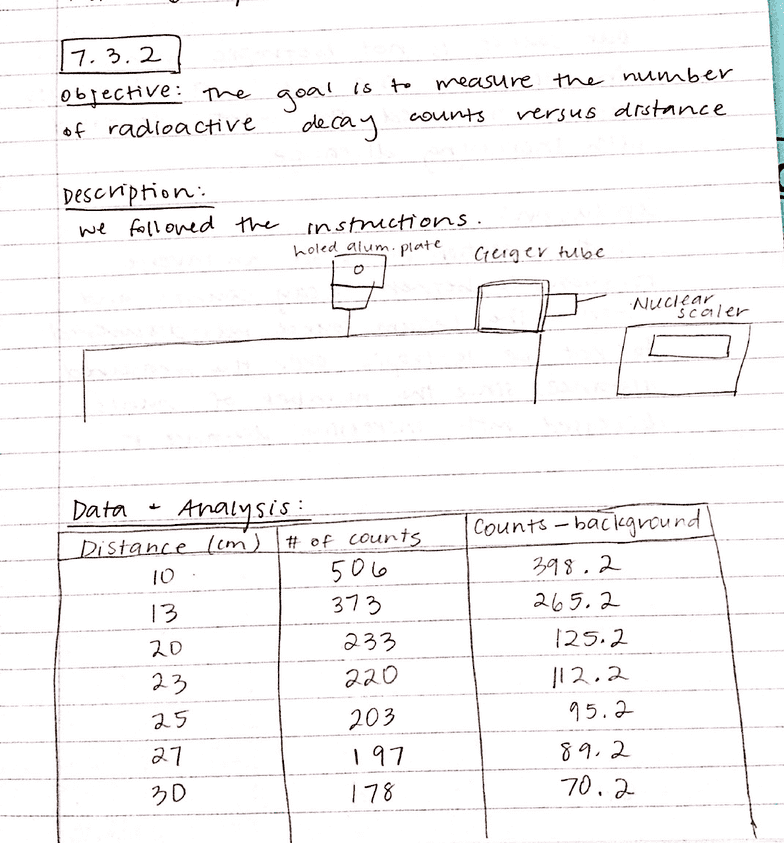 7.3.2
Objective: The goal is to measure the number
of radioactive decay counts versus distance
Description:
We followed the instructions.
holed alum. plate
Geiger tube
Nuclear
scaler
Data + Analysis:
Distance (cm) # of counts Counts - background
10 506 398.2
13 373 265.2
20 233 125.2
23 220 112.2
25 203 95.2
27 197 89.2
30 178 70.2